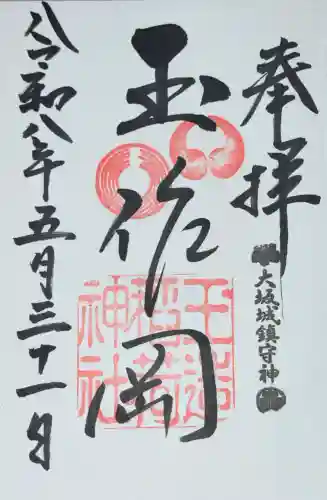 奉拝
大坂城鎮守神
玉作岡
玉造
稲荷
神社
令和八年五月三十一日